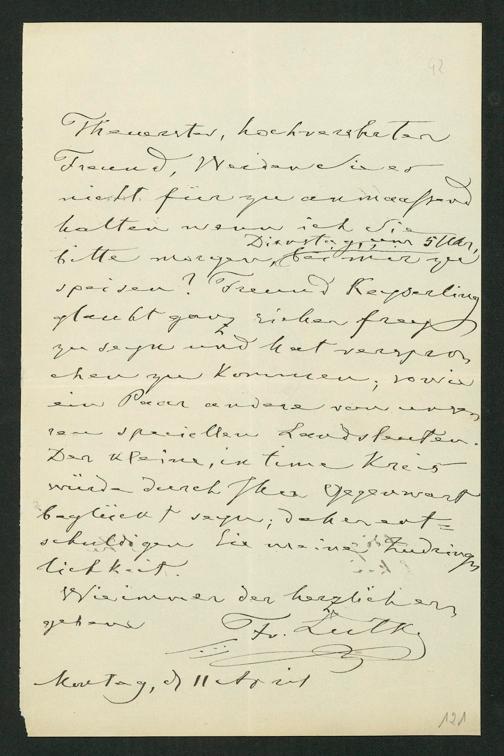 42
Theuerster, hochverehrter
Freund, Werden Sie es
nicht für zu anmaassend
halten wenn ich Sie
Dienstag, um 5 Uhr,
bitte morgen, bei mir zu
speisen? Freund Keyserling
glaubt ganz sicher frey
zu seyn und hat verspro
chen zu kommen; sowie
ein Paar andere von unse
ren speciellen Landsleuten.
Der kleine, intime Kreis
würde durch Ihre Gegenwart
beglückt seyn; daher ent=
schuldigen Sie meine Zudring
lichkeit.
Wie immer der herzlich er
gebene
Fr. Lutke
Montag, d 11 April
121